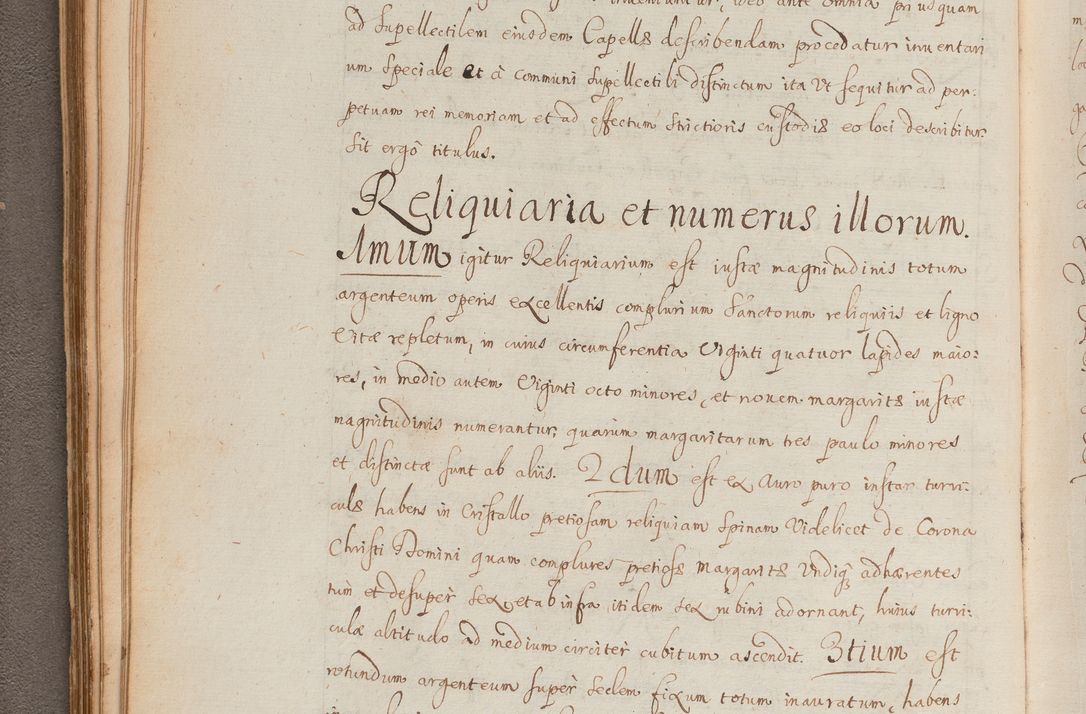 inveniuntur, ideo ante omnia priusquam
ad supellectilem eiusdem Capellæ describendam procedatur inventari
um speciale et à communi supellectili distinctum ita ut sequitur ad per:
petuam rei memoriam et ad effectum strictioris custodiæ eo loci describitur
sit ergò titulus.
Reliquiaria et numerus illorum.
1mum igitur Reliquiarium est iustæ magnitudinis totum
argenteum operis excellentis complurium Sanctorum reliquiis et ligno
Vitæ repletum, in cuius circumferentia Viginti quatuor lapides maio:
res, in medio autem Viginti octo minores, et novem margaritæ iustæ
magnitudinis numerantur, quarum margaritarum tres paulo minores
et distinctæ sunt ab aliis. 2dum est ex Auro puro instar turri:
culæ habens in Cristallo pretiosam reliquiam Spinam Videlicet de Corona
Christi Domini quam complures pretiosæ margaritæ Undiqꝫ adhærentes
tum et desuper sex et ab infra itidem sex rubini adornant, huius turri:
culæ altitudo ad medium circiter cubitum ascendit. 3tium est
rotundum argenteum super sedem fixum totum inauratum, habens